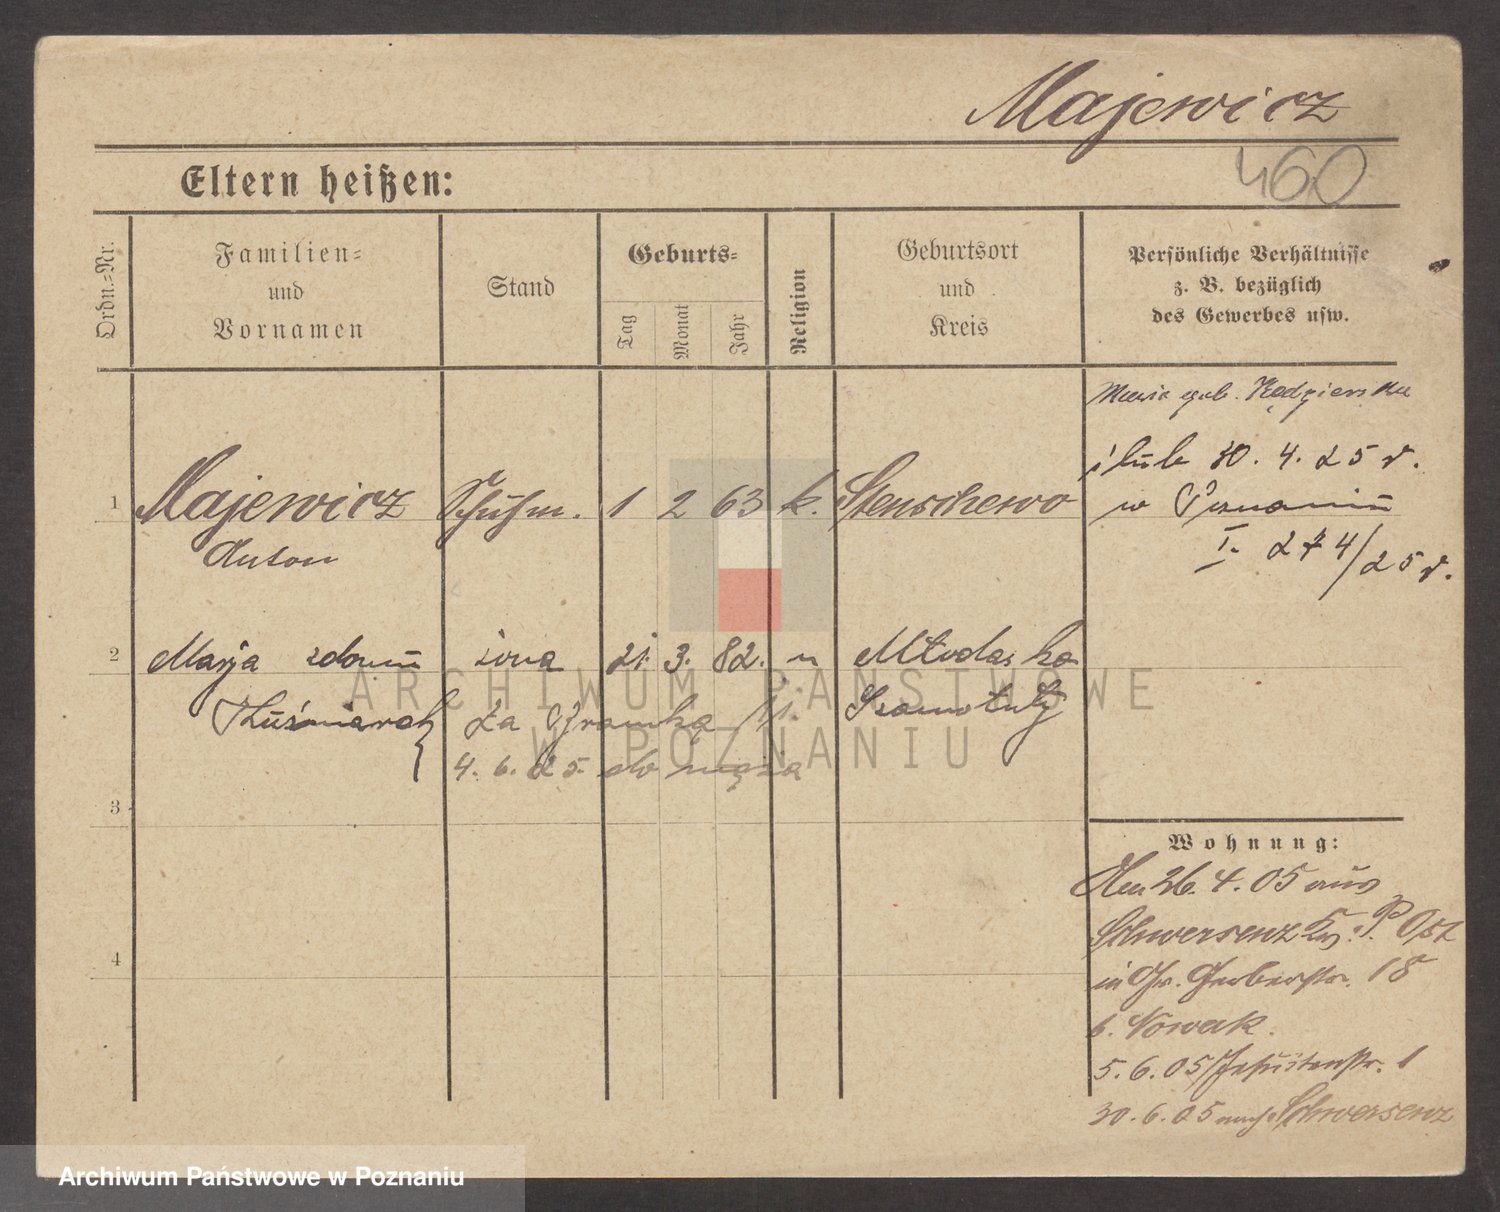 Majewicz
460
Eltern heißen:
Ordn.-Nr.
Familien-
und
Vornamen
Stand
Geburts-
Tag
Monat
Jahr
Religion
Geburtsort
und
Kreis
Persönliche Verhältnisse
z. B. bezüglich
des Gewerbes usw.
1 Majewicz Schuhm. 1 2 63 k. Stenschewo
Anton
Maria geb. Kędzierska
ślub 30. 4. 25 r.
w Poznaniu
I. 274/25 r.
2 Marja zdomu żona 21. 3. 82. " Młodasko
Kuśmierak za Gramką Szamotuły
4. 6. 25. do męża
3
4
Wohnung:
Den 26. 4. 05 aus
Schwersenz Kr. P. Ost
in Gr. Gerberstr. 18
b. Nowak.
5. 6. 05 Jesuitenstr. 1
30. 6. 05 nach Schwersenz
ARCHIWUM PAŃSTWOWE
W POZNANIU
Archiwum Państwowe w Poznaniu